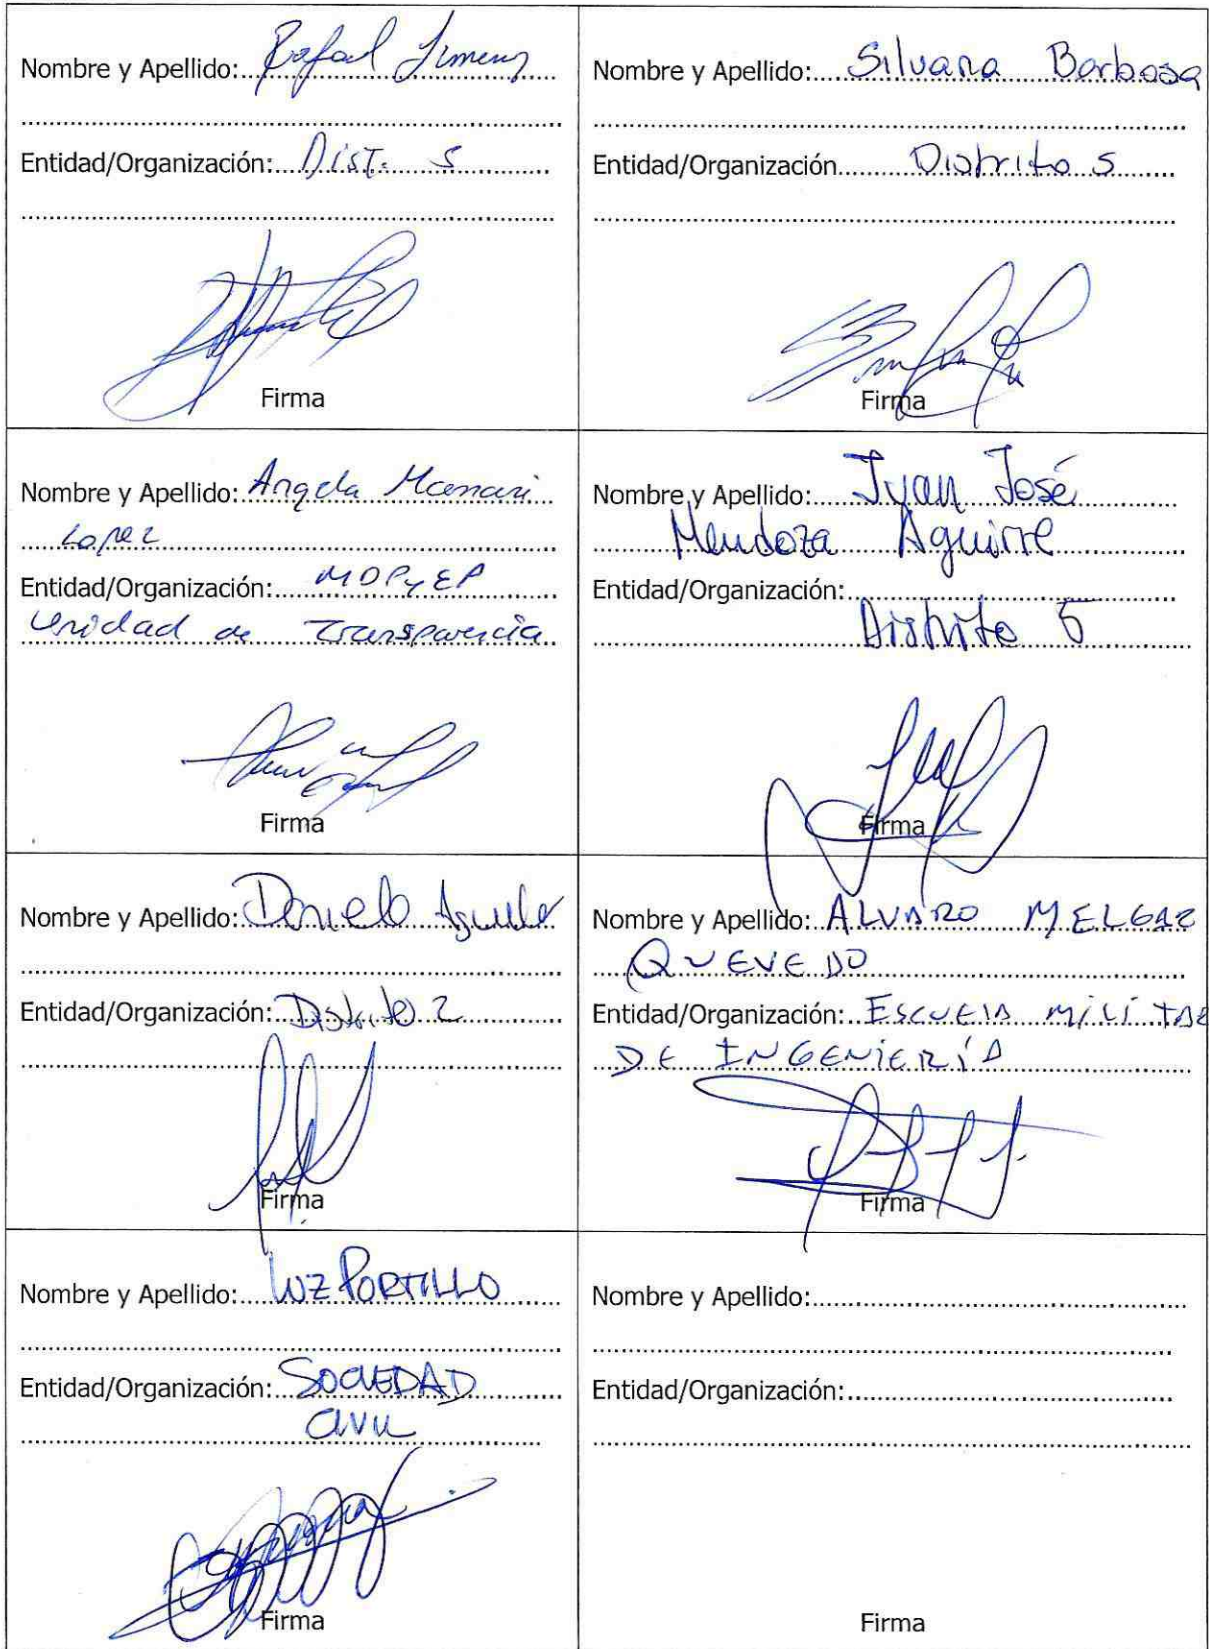 Nombre y Apellido: Rafael Jimenz
Entidad/Organización: Dist. 5
Firma
Nombre y Apellido: Silvana Barbosa
Entidad/Organización Distrito 5
Firma
Nombre y Apellido: Angela Mamani
Lopez
Entidad/Organización: MDPyEP
Unidad de Transparencia
Firma
Nombre y Apellido: Juan José
Mendoza Aguirre
Entidad/Organización:
Distrito 5
Firma
Nombre y Apellido: Daniela Aguilar
Entidad/Organización: Distrito 2
Firma
Nombre y Apellido: ALVARO MELGAR
QUEVEDO
Entidad/Organización: ESCUELA MILITAR
DE INGENIERÍA
Firma
Nombre y Apellido: LUZ PORTILLO
Entidad/Organización: SOCIEDAD
CIVIL
Firma
Nombre y Apellido:
Entidad/Organización:
Firma